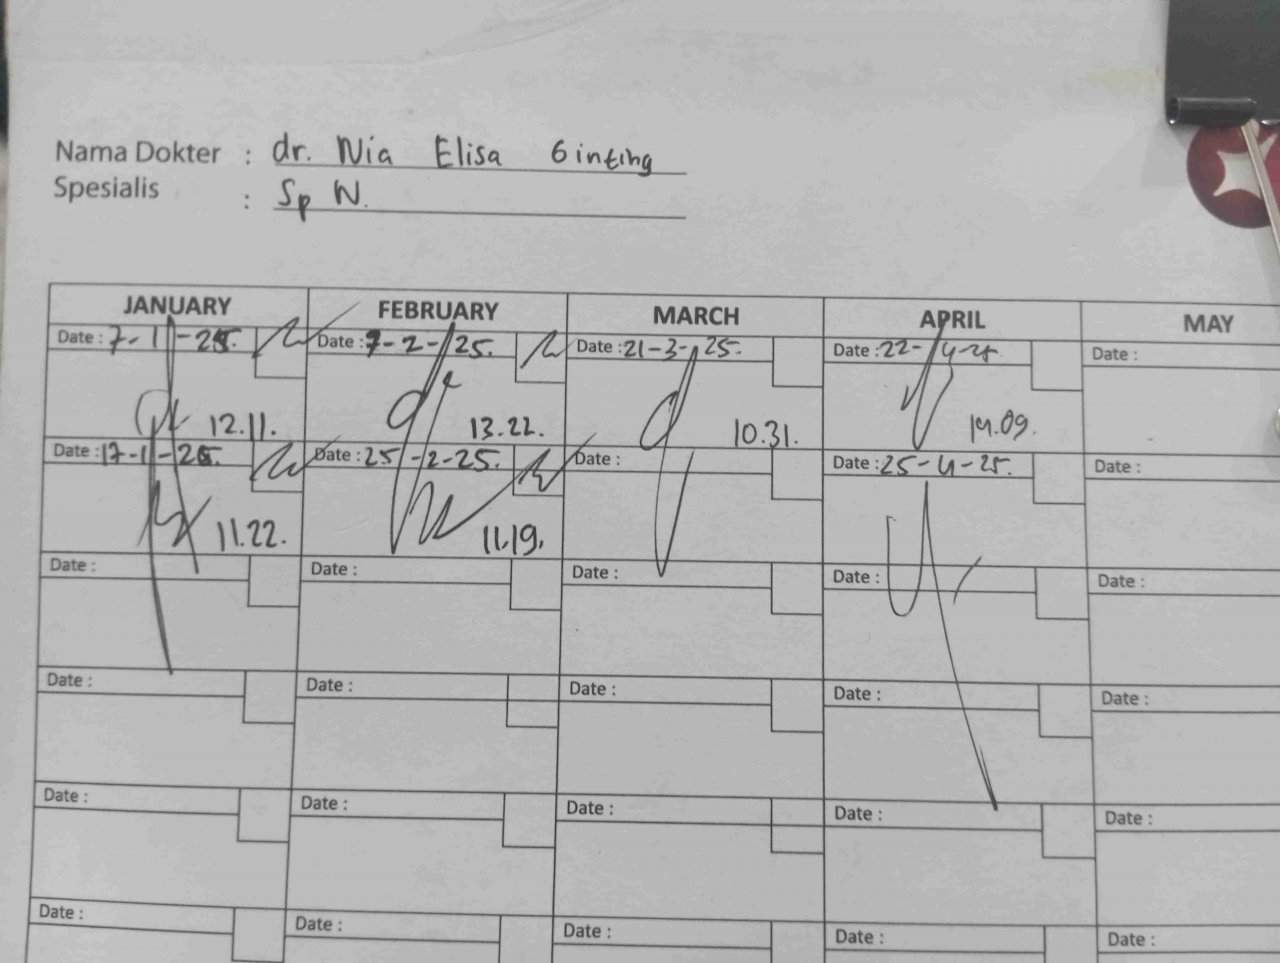 Nama Dokter : dr. Nia Elisa Ginting
Spesialis : Sp N.
JANUARY FEBRUARY MARCH APRIL MAY
Date : 7-1-25. Date : 7-2-25. Date : 21-3-25. Date : 22-4-25 Date :
12.11. 13.22. 10.31. 14.09.
Date : 17-1-25. Date : 25-2-25. Date : Date : 25-4-25. Date :
11.22. 11.19.
Date : Date : Date : Date : Date :
Date : Date : Date : Date : Date :
Date : Date : Date : Date : Date :
Date : Date : Date : Date : Date :